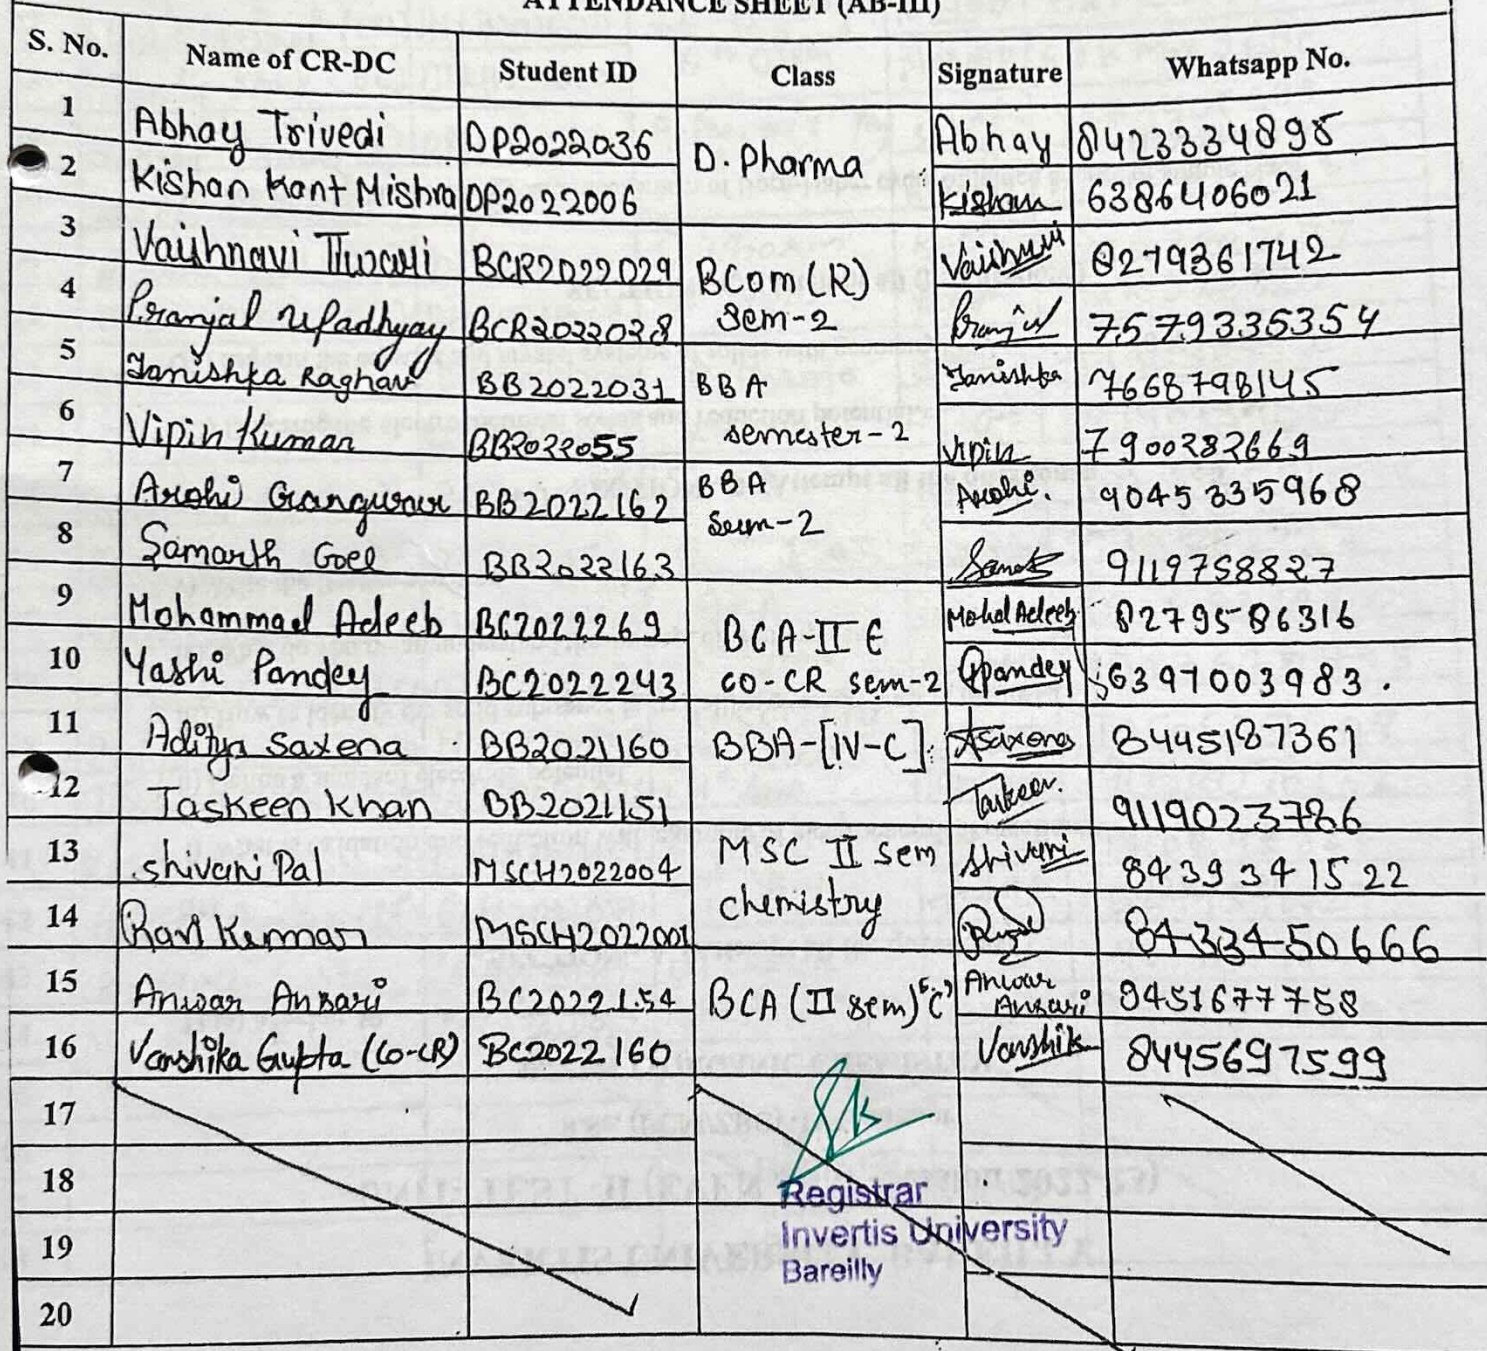 ATTENDANCE SHEET (AB-III)
S. No. Name of CR-DC Student ID Class Signature Whatsapp No.
1 Abhay Trivedi DP2022036 D. Pharma Abhay 8423334895
2 Kishan Kant Mishra DP2022006 Kishan 6386406021
3 Vaishnavi Tiwari BCR2022029 BCom(R) Vaishnavi 8279361742
4 Pranjal Upadhyay BCR2022028 Sem-2 Pranjal 7579335354
5 Tanishka Raghav BB2022031 BBA Tanishka 7668798145
6 Vipin Kumar BB2022055 semester-2 Vipin 7900282669
7 Arohi Gangwar BB2022162 BBA Arohi. 9045335968
8 Samarth Goel BB2022163 Sem-2 9119758827
9 Mohammad Adeeb BC2022269 BCA-II E Mohd Adeeb 8279586316
10 Yashi Pandey BC2022243 CO-CR Sem-2 Ypandey 6397003983.
11 Aditya Saxena BB2021160 BBA-[iv-C] Asaxena 8445187361
12 Taskeen Khan BB2021151 Taskeen. 9119023786
13 Shivani Pal MSCH2022004 MSC II Sem Shivani 8439341522
14 Ravi Kumar MSCH2022001 chemistry 8433450666
15 Anwar Ansari BC2022154 BCA (II sem) 'C' Anwar Ansari 9451677758
16 Vanshika Gupta (Co-CR) BC2022160 Vanshika 8445697599
17
18
19
20
Registrar
Invertis University
Bareilly